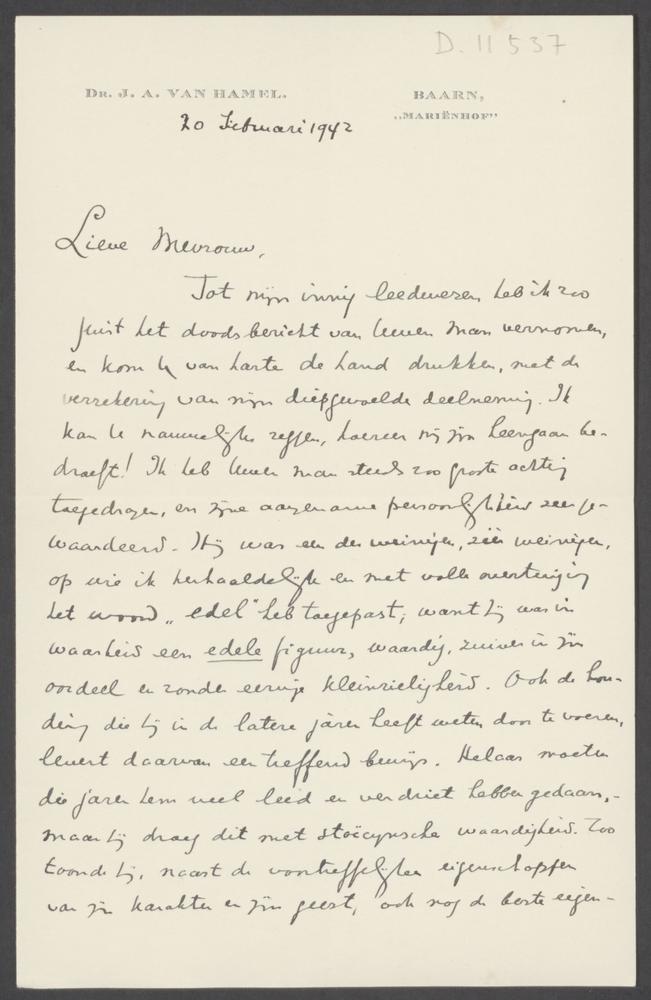 D. 11537
DR. J. A. VAN HAMEL. BAARN,
„MARIËNHOF”
20 Februari 1942
Lieve Mevrouw,
Tot mijn innig leedwezen heb ik zoo
juist het doodsbericht van Uwen man vernomen,
en kom U van harte de hand drukken, met de
verzekering van mijn diepgevoelde deelneming. Ik
kan U nauwelijks zeggen, hoezeer mij zijn heengaan be-
droeft! Ik heb Uwen man steeds zoo groote achting
toegedragen, en zijne aangename persoonlijkheid zeer ge-
waardeerd. Hij was een der weinigen, zéér weinigen,
op wie ik herhaaldelijk en met volle overtuiging
het woord „edel” heb toegepast; want hij was in
waarheid een edele figuur, waardig, zuiver in zijn
oordeel en zonder eenige kleinzieligheid. Ook de hou-
ding die hij in de latere jaren heeft weten door te voeren,
levert daarvan een treffend bewijs. Helaas moeten
die jaren hem veel leed en verdriet hebben gedaan,-
maar hij droeg dit met stoïcynsche waardigheid. Zoo
toonde hij, naast de voortreffelijke eigenschappen
van zijn karakter en zijn geest, ook nog de beste eigen-